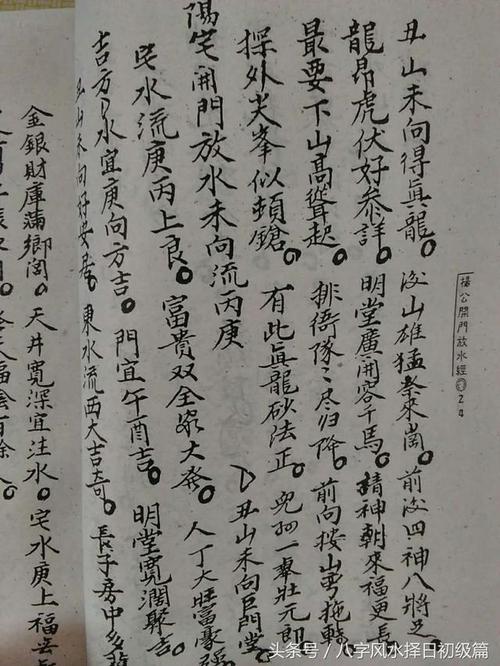 楊公開門放水經 24
丑山未向得眞龍。後山雄猛拳來崗。前後四神八將足
龍昂虎伏好參詳。明堂廣開容千馬。精神朝來福更長
最要下山高聳起。排衙隊〻盡归降。前向按山弯抱轉
探外尖峯似頓鎗。有此眞龍砂法正。兒孙一舉壯元郎
陽宅開門放水未向流丙庚 丑山未向巨門堂
宅水流庚丙上良。富貴双全家大發。人丁大旺富豪
吉方水宜庚向方吉。門宜午酉吉。明堂寬濶聚吉。
丑山未向好安居。東水流西大吉奇。長子房中多
金銀財庫滿鄉閭。天井寬深宜注水。宅水庚上福
头条号/八字风水择日初级篇